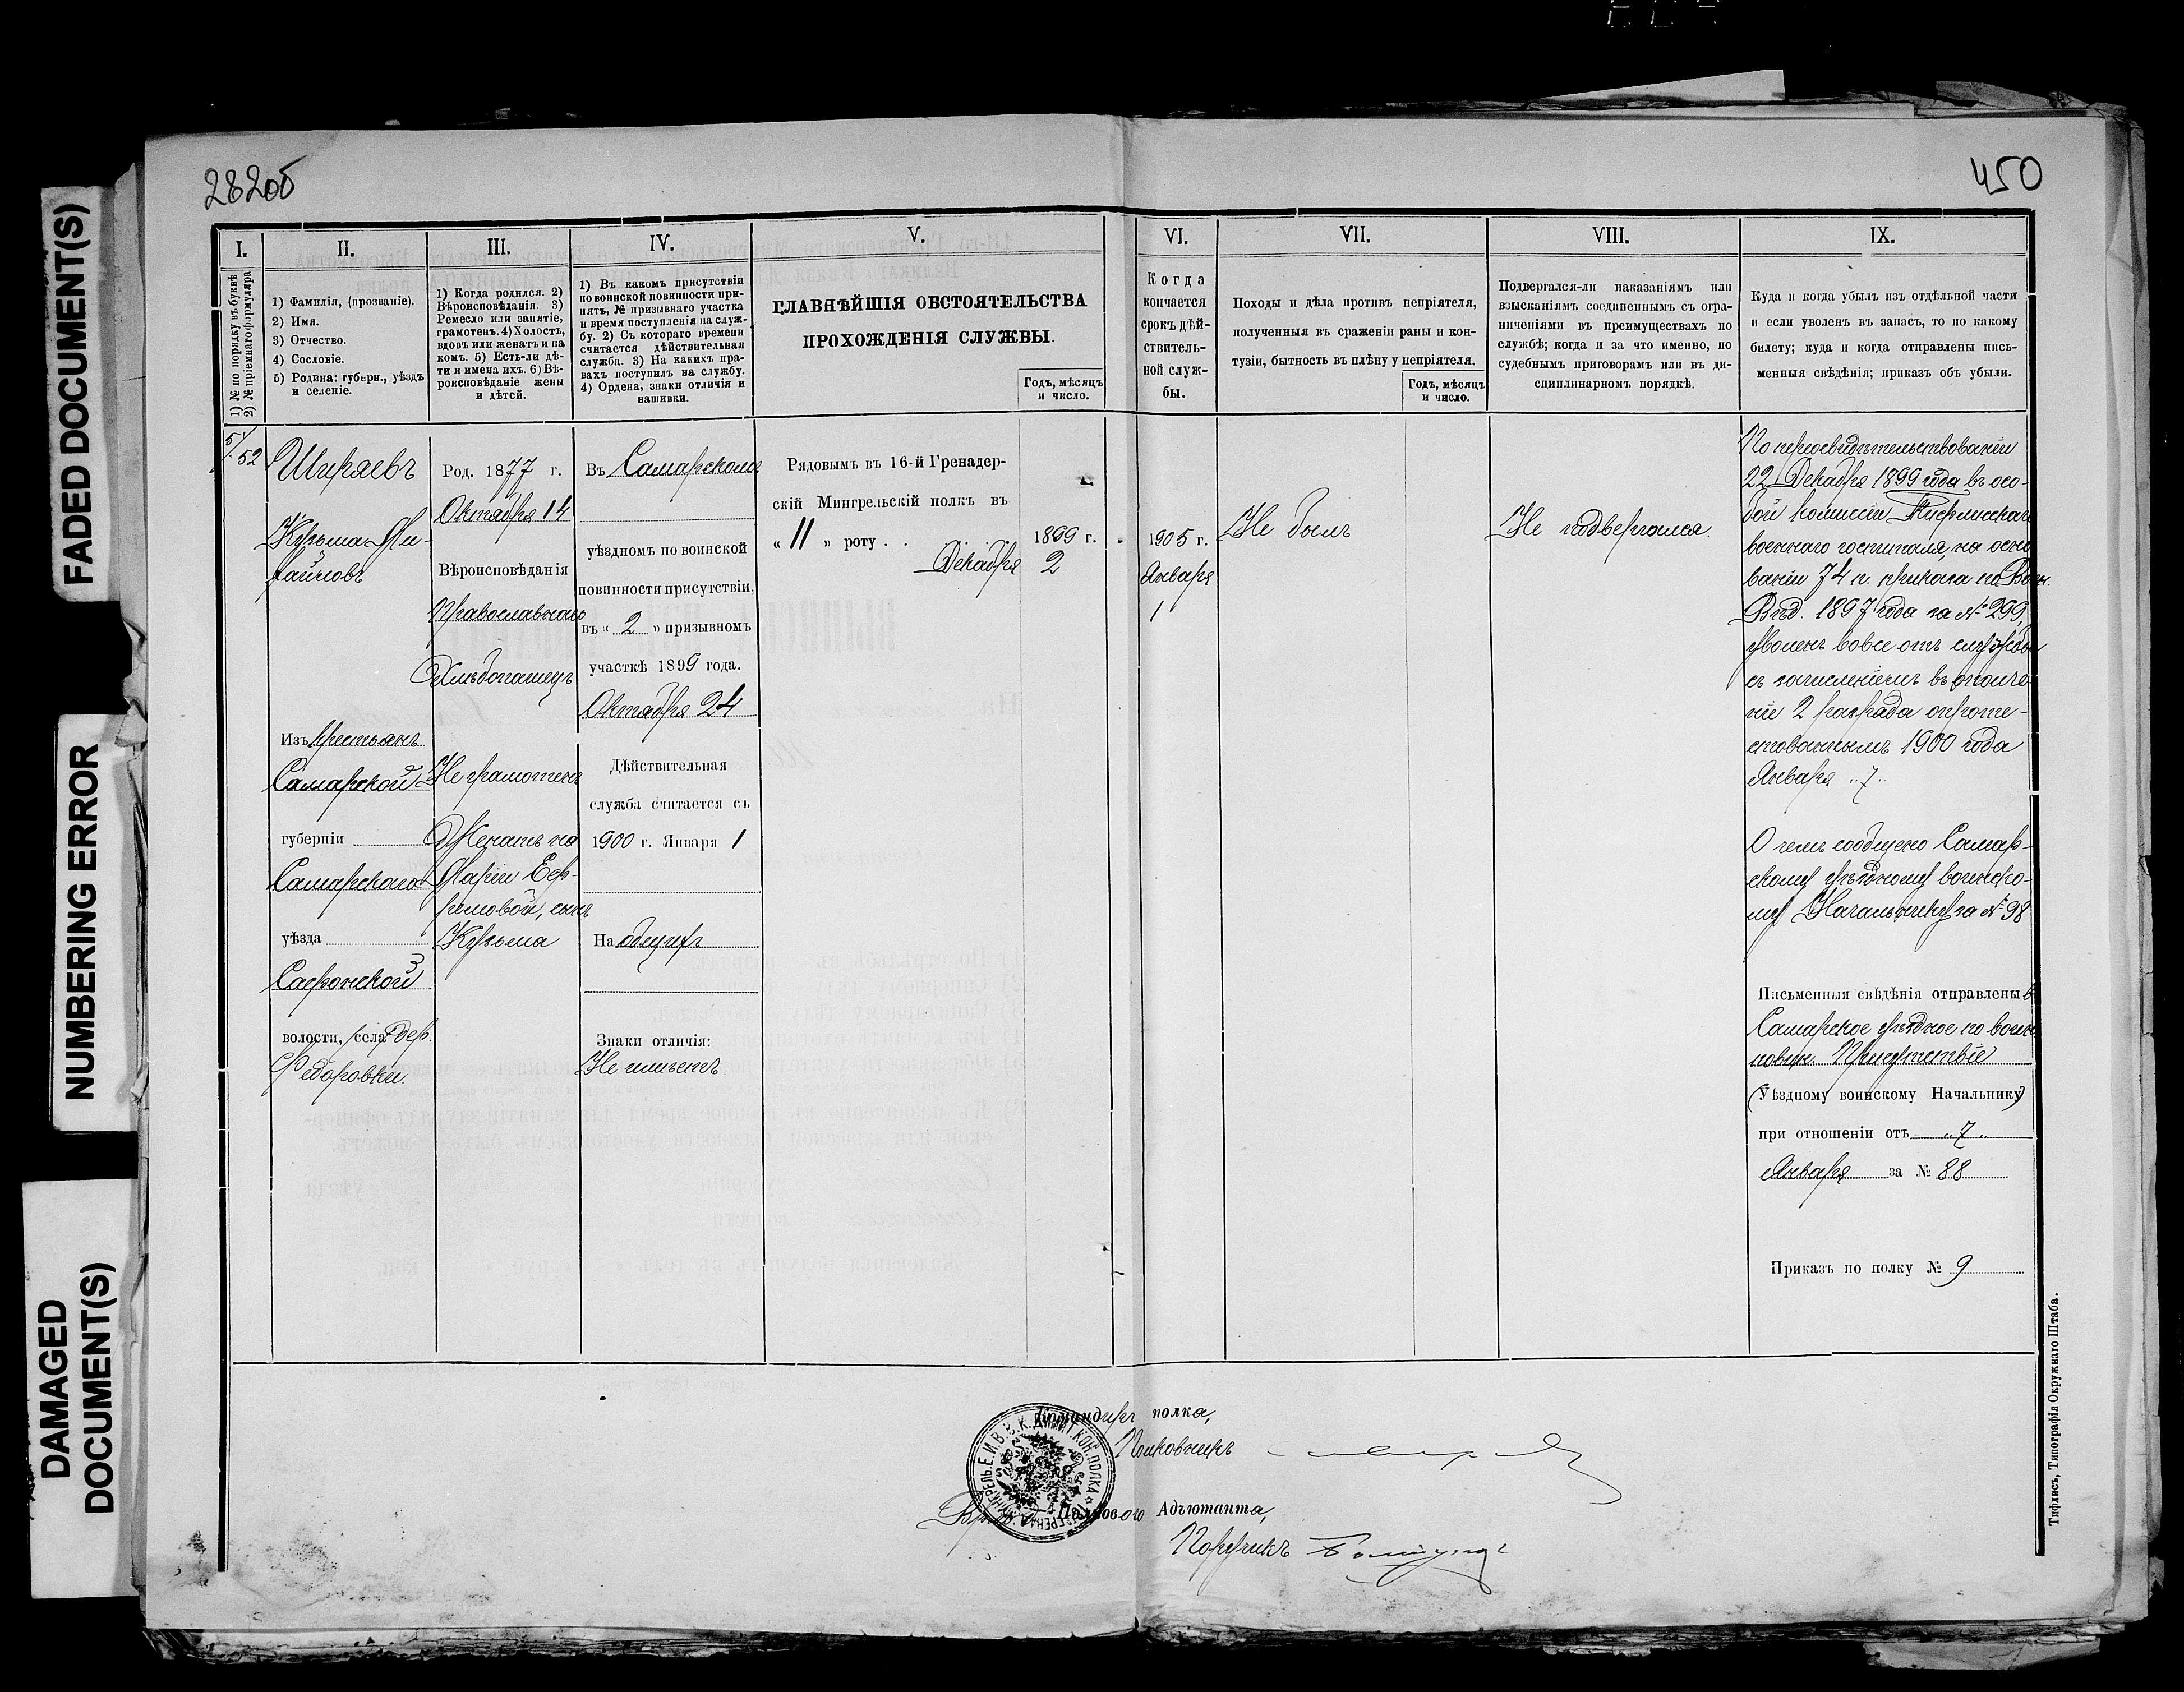 FADED DOCUMENT(S)
NUMBERING ERROR
DAMAGED
DOCUMENT(S)
282об
450
I.
1) № по порядку въ буквѣ
2) № пріемнаго формуляра
5/52
II.
1) Фамилія, (прозваніе).
2) Имя.
3) Отчество.
4) Сословіе.
5) Родина: губерн., уѣздъ
и селеніе.
Ширяевъ
Кузьма Ми-
хайловъ
Изъ крестьянъ
Самарской
губерніи
Самарскаго
уѣзда
волости, села дер.
Федоровки.
III.
1) Когда родился. 2)
Вѣроисповѣданія. 3)
Ремесло или занятіе,
грамотенъ. 4) Холостъ,
вдовъ или женатъ и на
комъ. 5) Есть-ли дѣ-
ти и имена ихъ. 6) Вѣ-
роисповѣданіе жены
и дѣтей.
Род. 1877 г.
Октября 14
Вѣроисповѣданія
Православнаго
Хлѣбопашецъ
Не грамотенъ
Женатъ на
Маріи Еф-
ремовой, сынъ
Кузьма
IV.
1) Въ какомъ присутствіи
по воинской повинности при-
нятъ, № призывнаго участка
и время поступленія на служ-
бу. 2) Съ котораго времени
считается дѣйствительная
служба. 3) На какихъ пра-
вахъ поступилъ на службу.
4) Ордена, знаки отличія и
нашивки.
Въ Самарскомъ
уѣздномъ по воинской
повинности присутствіи.
въ " 2 " призывномъ
участкѣ 1899 года.
Октября 24
Дѣйствительная
служба считается съ
1900 г. Января 1
На общихъ
Знаки отличія:
Не имѣетъ
V.
ГЛАВНѢЙШІЯ ОБСТОЯТЕЛЬСТВА
ПРОХОЖДЕНІЯ СЛУЖБЫ.
Годъ, мѣсяцъ
и число.
Рядовымъ въ 16-й Гренадер-
скій Мингрельскій полкъ въ
" 11 " роту . . 1899 г.
Декабря 2
VI.
Когда
кончается
срокъ дѣй-
ствитель-
ной служ-
бы.
1905 г.
Января
1
VII.
Походы и дѣла противъ непріятеля,
полученныя въ сраженіи раны и кон-
тузіи, бытность въ плѣну у непріятеля.
Годъ, мѣсяцъ
и число.
Не былъ
VIII.
Подвергался-ли наказаніямъ или
взысканіямъ соединеннымъ съ огра-
ниченіями въ преимуществахъ по
службѣ; когда и за что именно, по
судебнымъ приговорамъ или въ ди-
сциплинарномъ порядкѣ.
Не подвергался.
IX.
Куда и когда убылъ изъ отдѣльной части
и если уволенъ въ запасъ, то по какому
билету; куда и когда отправлены пись-
менныя свѣдѣнія; приказъ объ убыли.
По переосвидѣтельствованіи
22 Декабря 1899 года въ осо-
бой комиссіи Тифлисскаго
военнаго госпиталя, на осно-
ваніи 74 п. приказа по Воен.
Вѣд. 1897 года за № 299,
уволенъ вовсе отъ службы
съ зачисленіемъ въ ополче-
ніе 2 разряда опроте-
стованнымъ 1900 года
Января „7„
О чемъ сообщено Самар-
скому уѣздному воинско-
му Начальнику за № 98
Письменныя свѣдѣнія отправлены въ
Самарское уѣздное по воин.
повин. Присутствіе
(Уѣздному воинскому Начальнику)
при отношеніи отъ „7„
Января за № 88
Приказъ по полку № 9
Командиръ полка,
Полковникъ
Полковаго Адъютанта,
Поручикъ
Тифлисъ, Типографія Окружнаго Штаба.